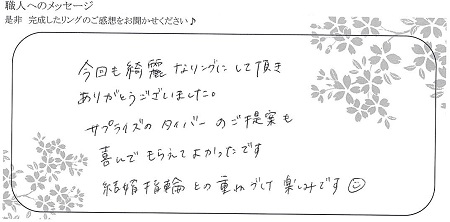 職人へのメッセージ
是非 完成したリングのご感想をお聞かせください♪
今回も綺麗なリングにして頂き
ありがとうございました。
サプライズのタイバーのご提案も
喜んでもらえてよかったです
結婚指輪との重ねづけ楽しみです☺